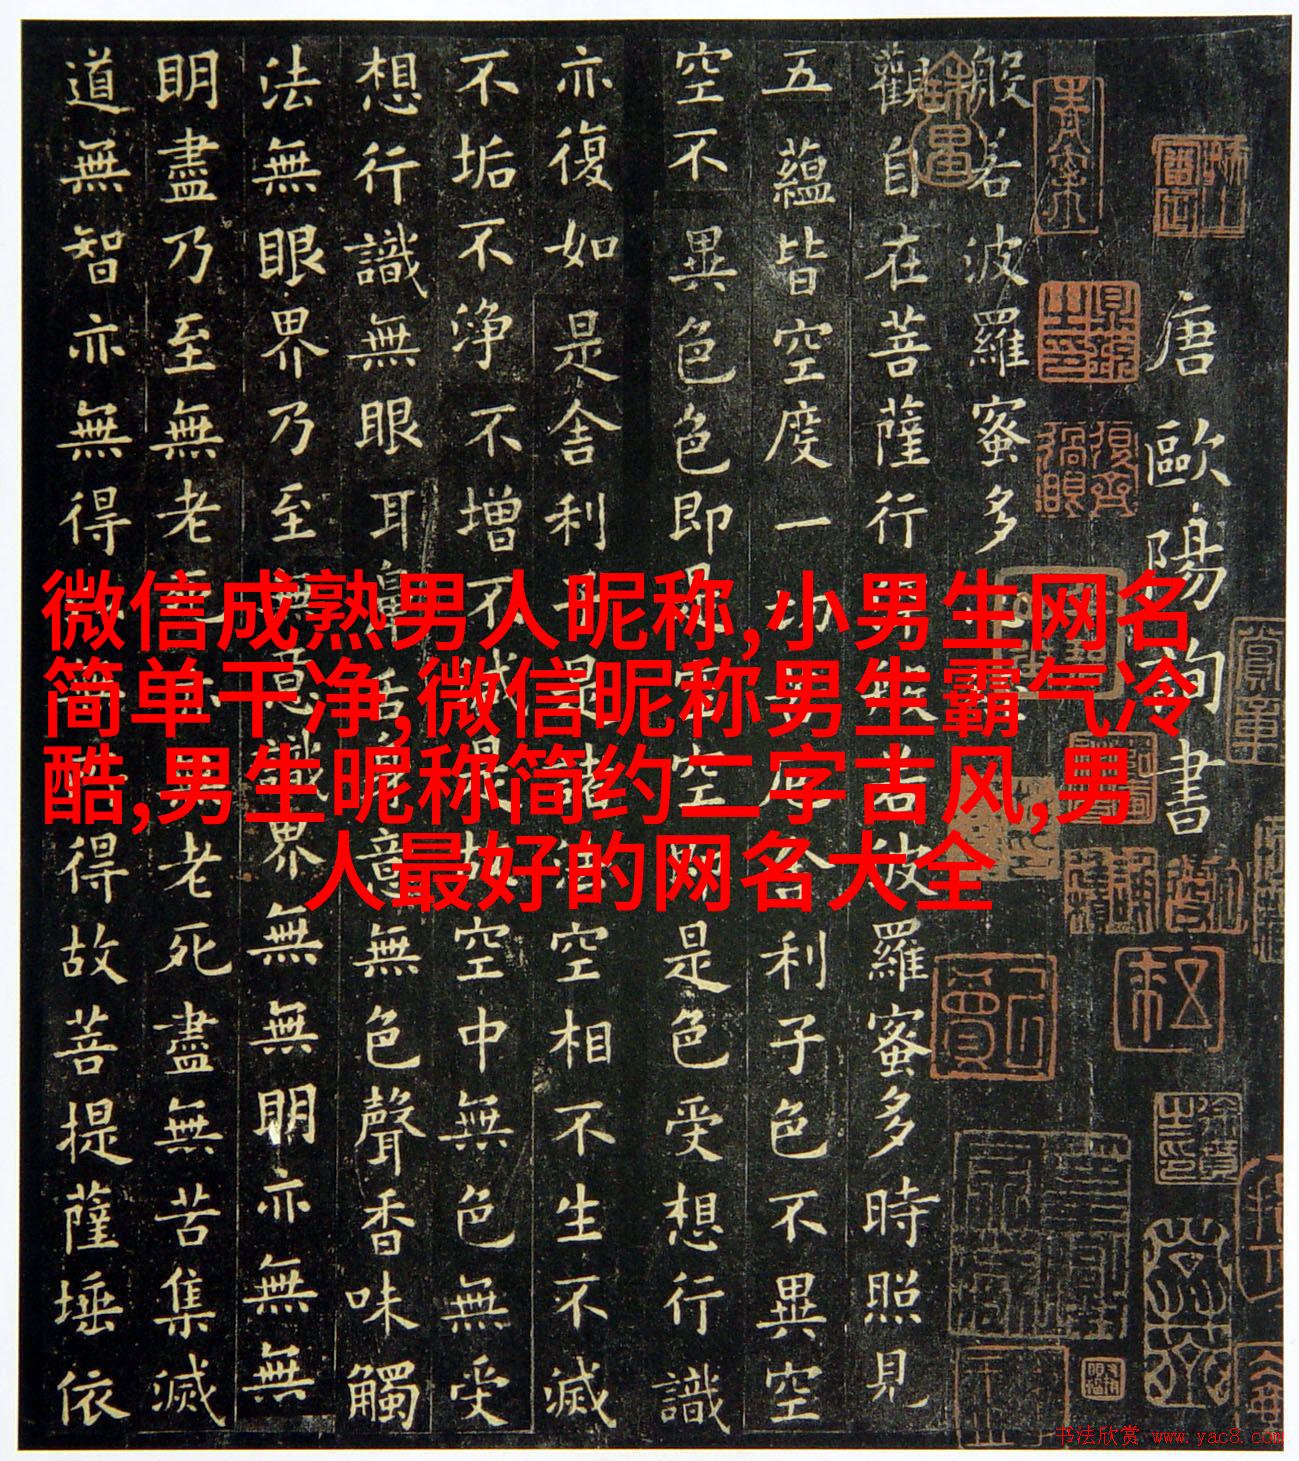 唐歐陽詢書
般若波羅蜜多
觀自在菩薩行深般若波羅蜜多時照見
五蘊皆空度一切苦厄舍利子色不異空
空不異色色即是空空即是色受想行識
亦復如是舍利子是諸法空相不生不滅
不垢不淨不增不減是故空中無色無受
想行識無眼耳鼻舌身意無色聲香味觸
法無眼界乃至無意識界無無明亦無無
明盡乃至無老死亦無老死盡無苦集滅
道無智亦無得以無所得故菩提薩埵依
微信成熟男人昵称,小男生网名
简单干净,微信昵称男生霸气冷
酷,男生昵称简约二字古风,男
人最好的网名大全
书法欣赏 www.yac8.com